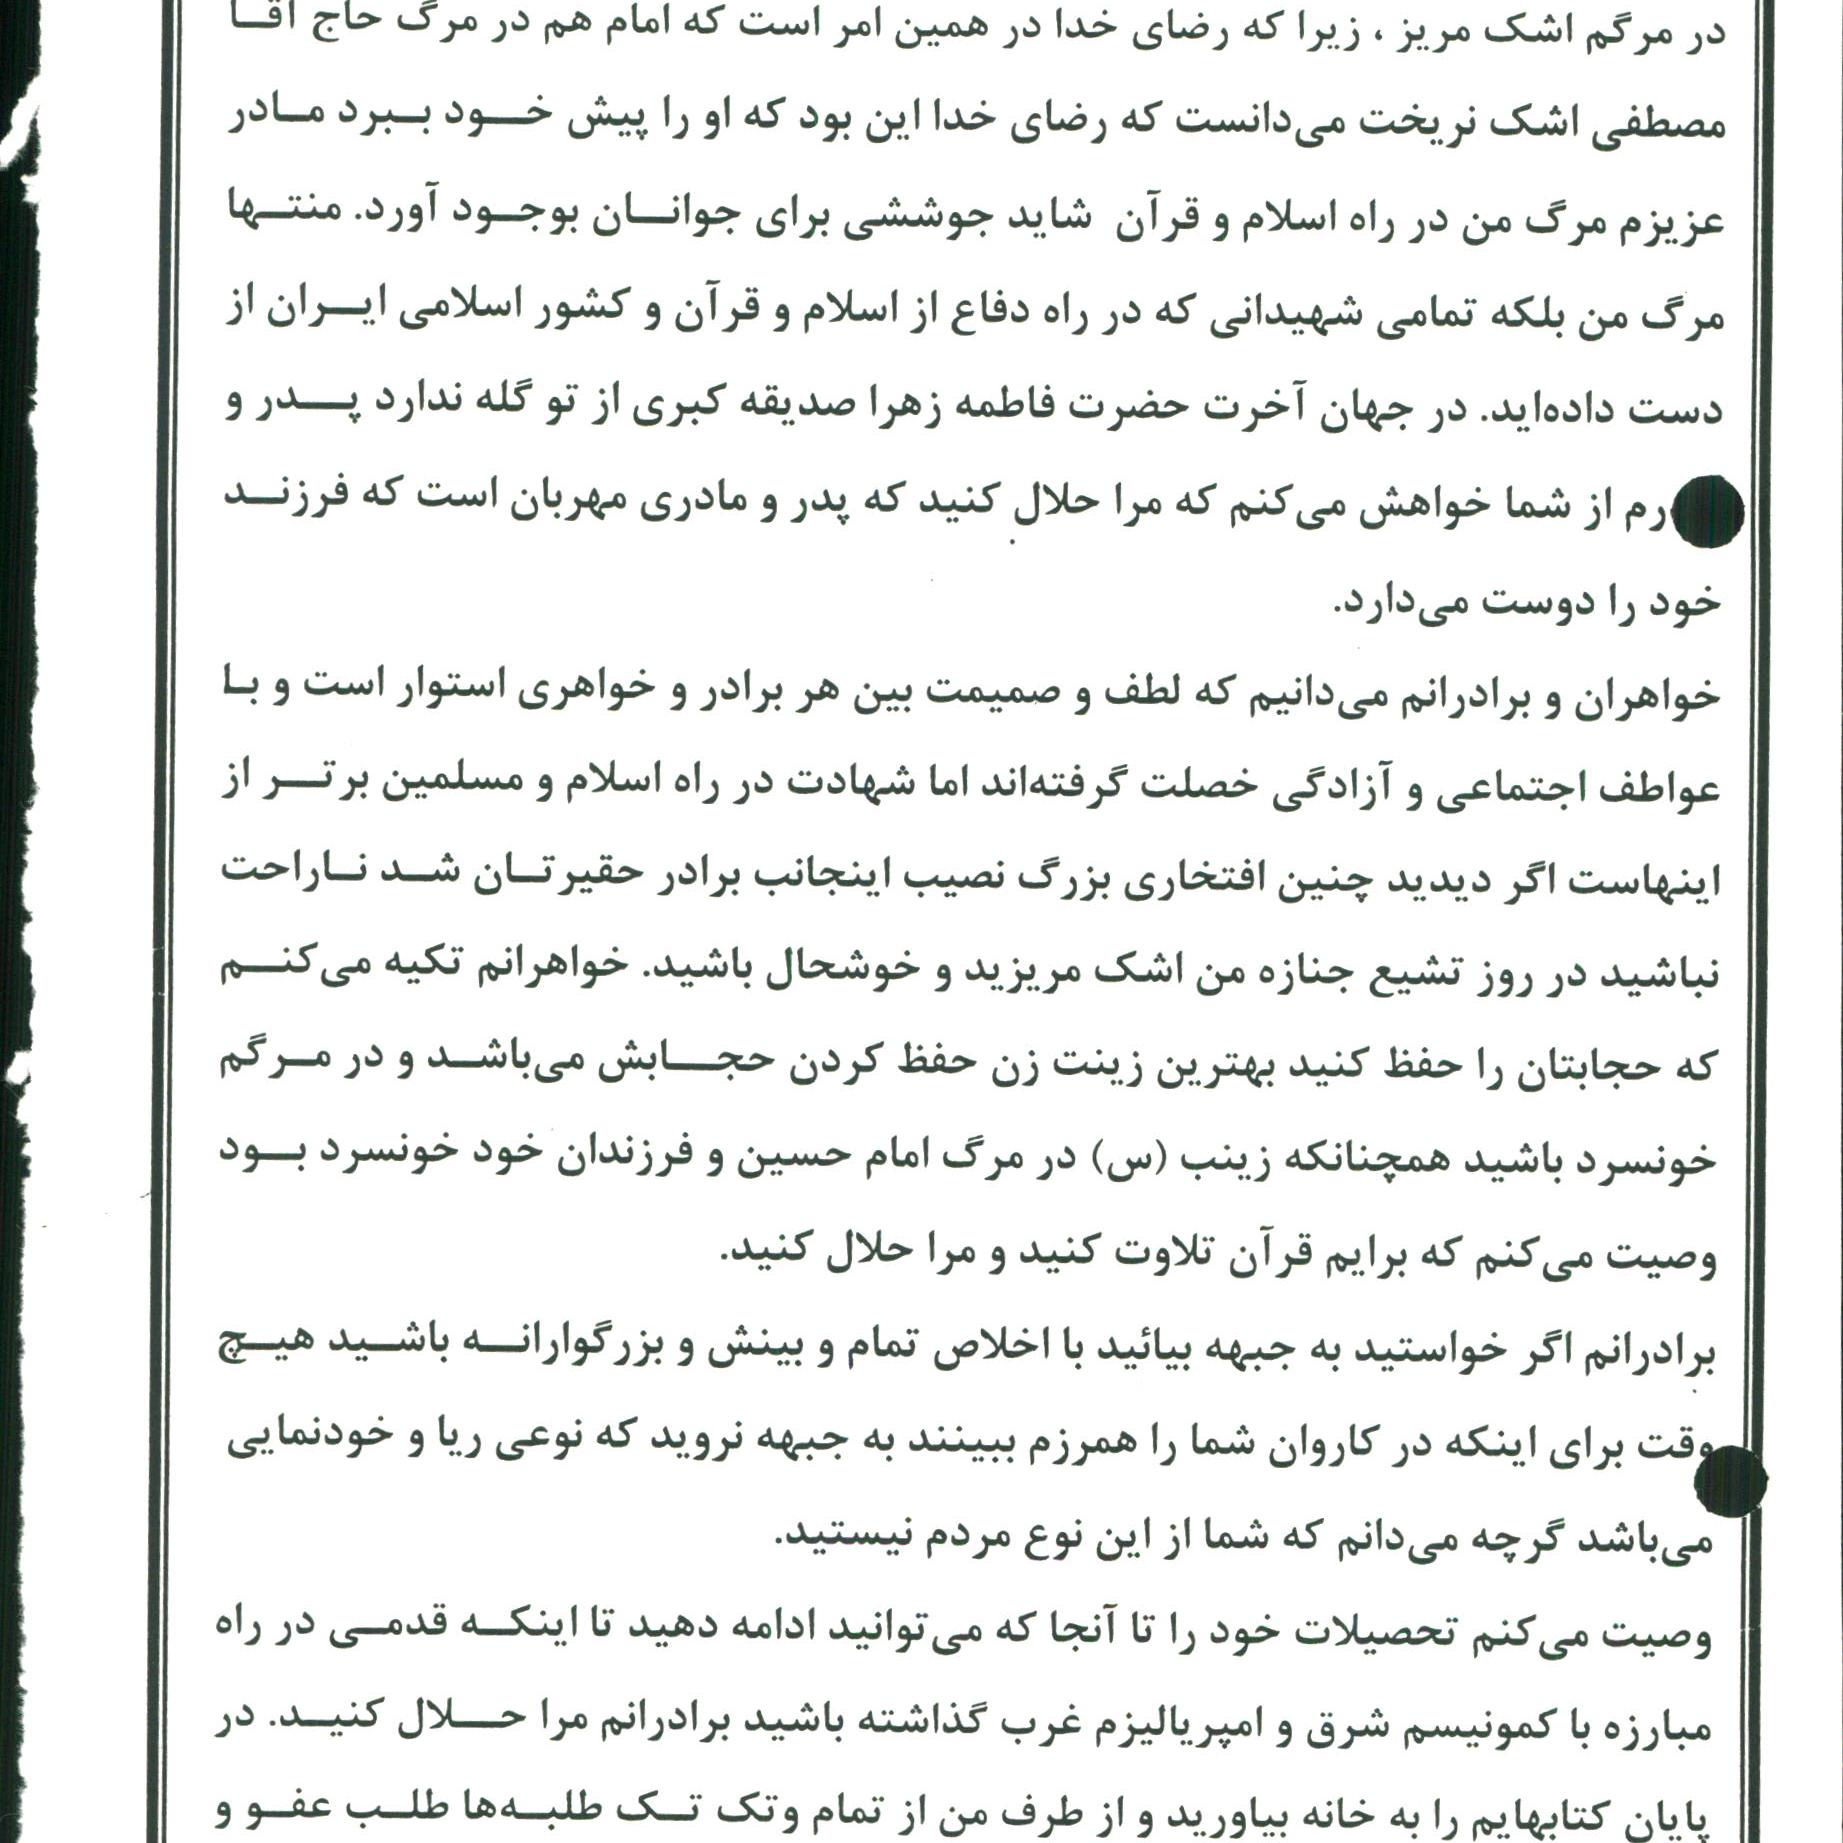 در مرگم اشک مریز ، زیرا که رضای خدا در همین امر است که امام هم در مرگ حاج آقا
مصطفی اشک نریخت می‌دانست که رضای خدا این بود که او را پیش خود ببرد مادر
عزیزم مرگ من در راه اسلام و قرآن شاید جوششی برای جوانان بوجود آورد. منتها
مرگ من بلکه تمامی شهیدانی که در راه دفاع از اسلام و قرآن و کشور اسلامی ایران از
دست داده‌اید. در جهان آخرت حضرت فاطمه زهرا صدیقه کبری از تو گله ندارد پدر و
رم از شما خواهش می‌کنم که مرا حلال کنید که پدر و مادری مهربان است که فرزند
خود را دوست می‌دارد.
خواهران و برادرانم می‌دانیم که لطف و صمیمت بین هر برادر و خواهری استوار است و با
عواطف اجتماعی و آزادگی خصلت گرفته‌اند اما شهادت در راه اسلام و مسلمین برتر از
اینهاست اگر دیدید چنین افتخاری بزرگ نصیب اینجانب برادر حقیرتان شد ناراحت
نباشید در روز تشیع جنازه من اشک مریزید و خوشحال باشید. خواهرانم تکیه می‌کنم
که حجابتان را حفظ کنید بهترین زینت زن حفظ کردن حجابش می‌باشد و در مرگم
خونسرد باشید همچنانکه زینب (س) در مرگ امام حسین و فرزندان خود خونسرد بود
وصیت می‌کنم که برایم قرآن تلاوت کنید و مرا حلال کنید.
برادرانم اگر خواستید به جبهه بیائید با اخلاص تمام و بینش و بزرگوارانه باشید هیچ
وقت برای اینکه در کاروان شما را همرزم ببینند به جبهه نروید که نوعی ریا و خودنمایی
می‌باشد گرچه می‌دانم که شما از این نوع مردم نیستید.
وصیت می‌کنم تحصیلات خود را تا آنجا که می‌توانید ادامه دهید تا اینکه قدمی در راه
مبارزه با کمونیسم شرق و امپریالیزم غرب گذاشته باشید برادرانم مرا حلال کنید. در
پایان کتابهایم را به خانه بیاورید و از طرف من از تمام وتک تک طلبه‌ها طلب عفو و